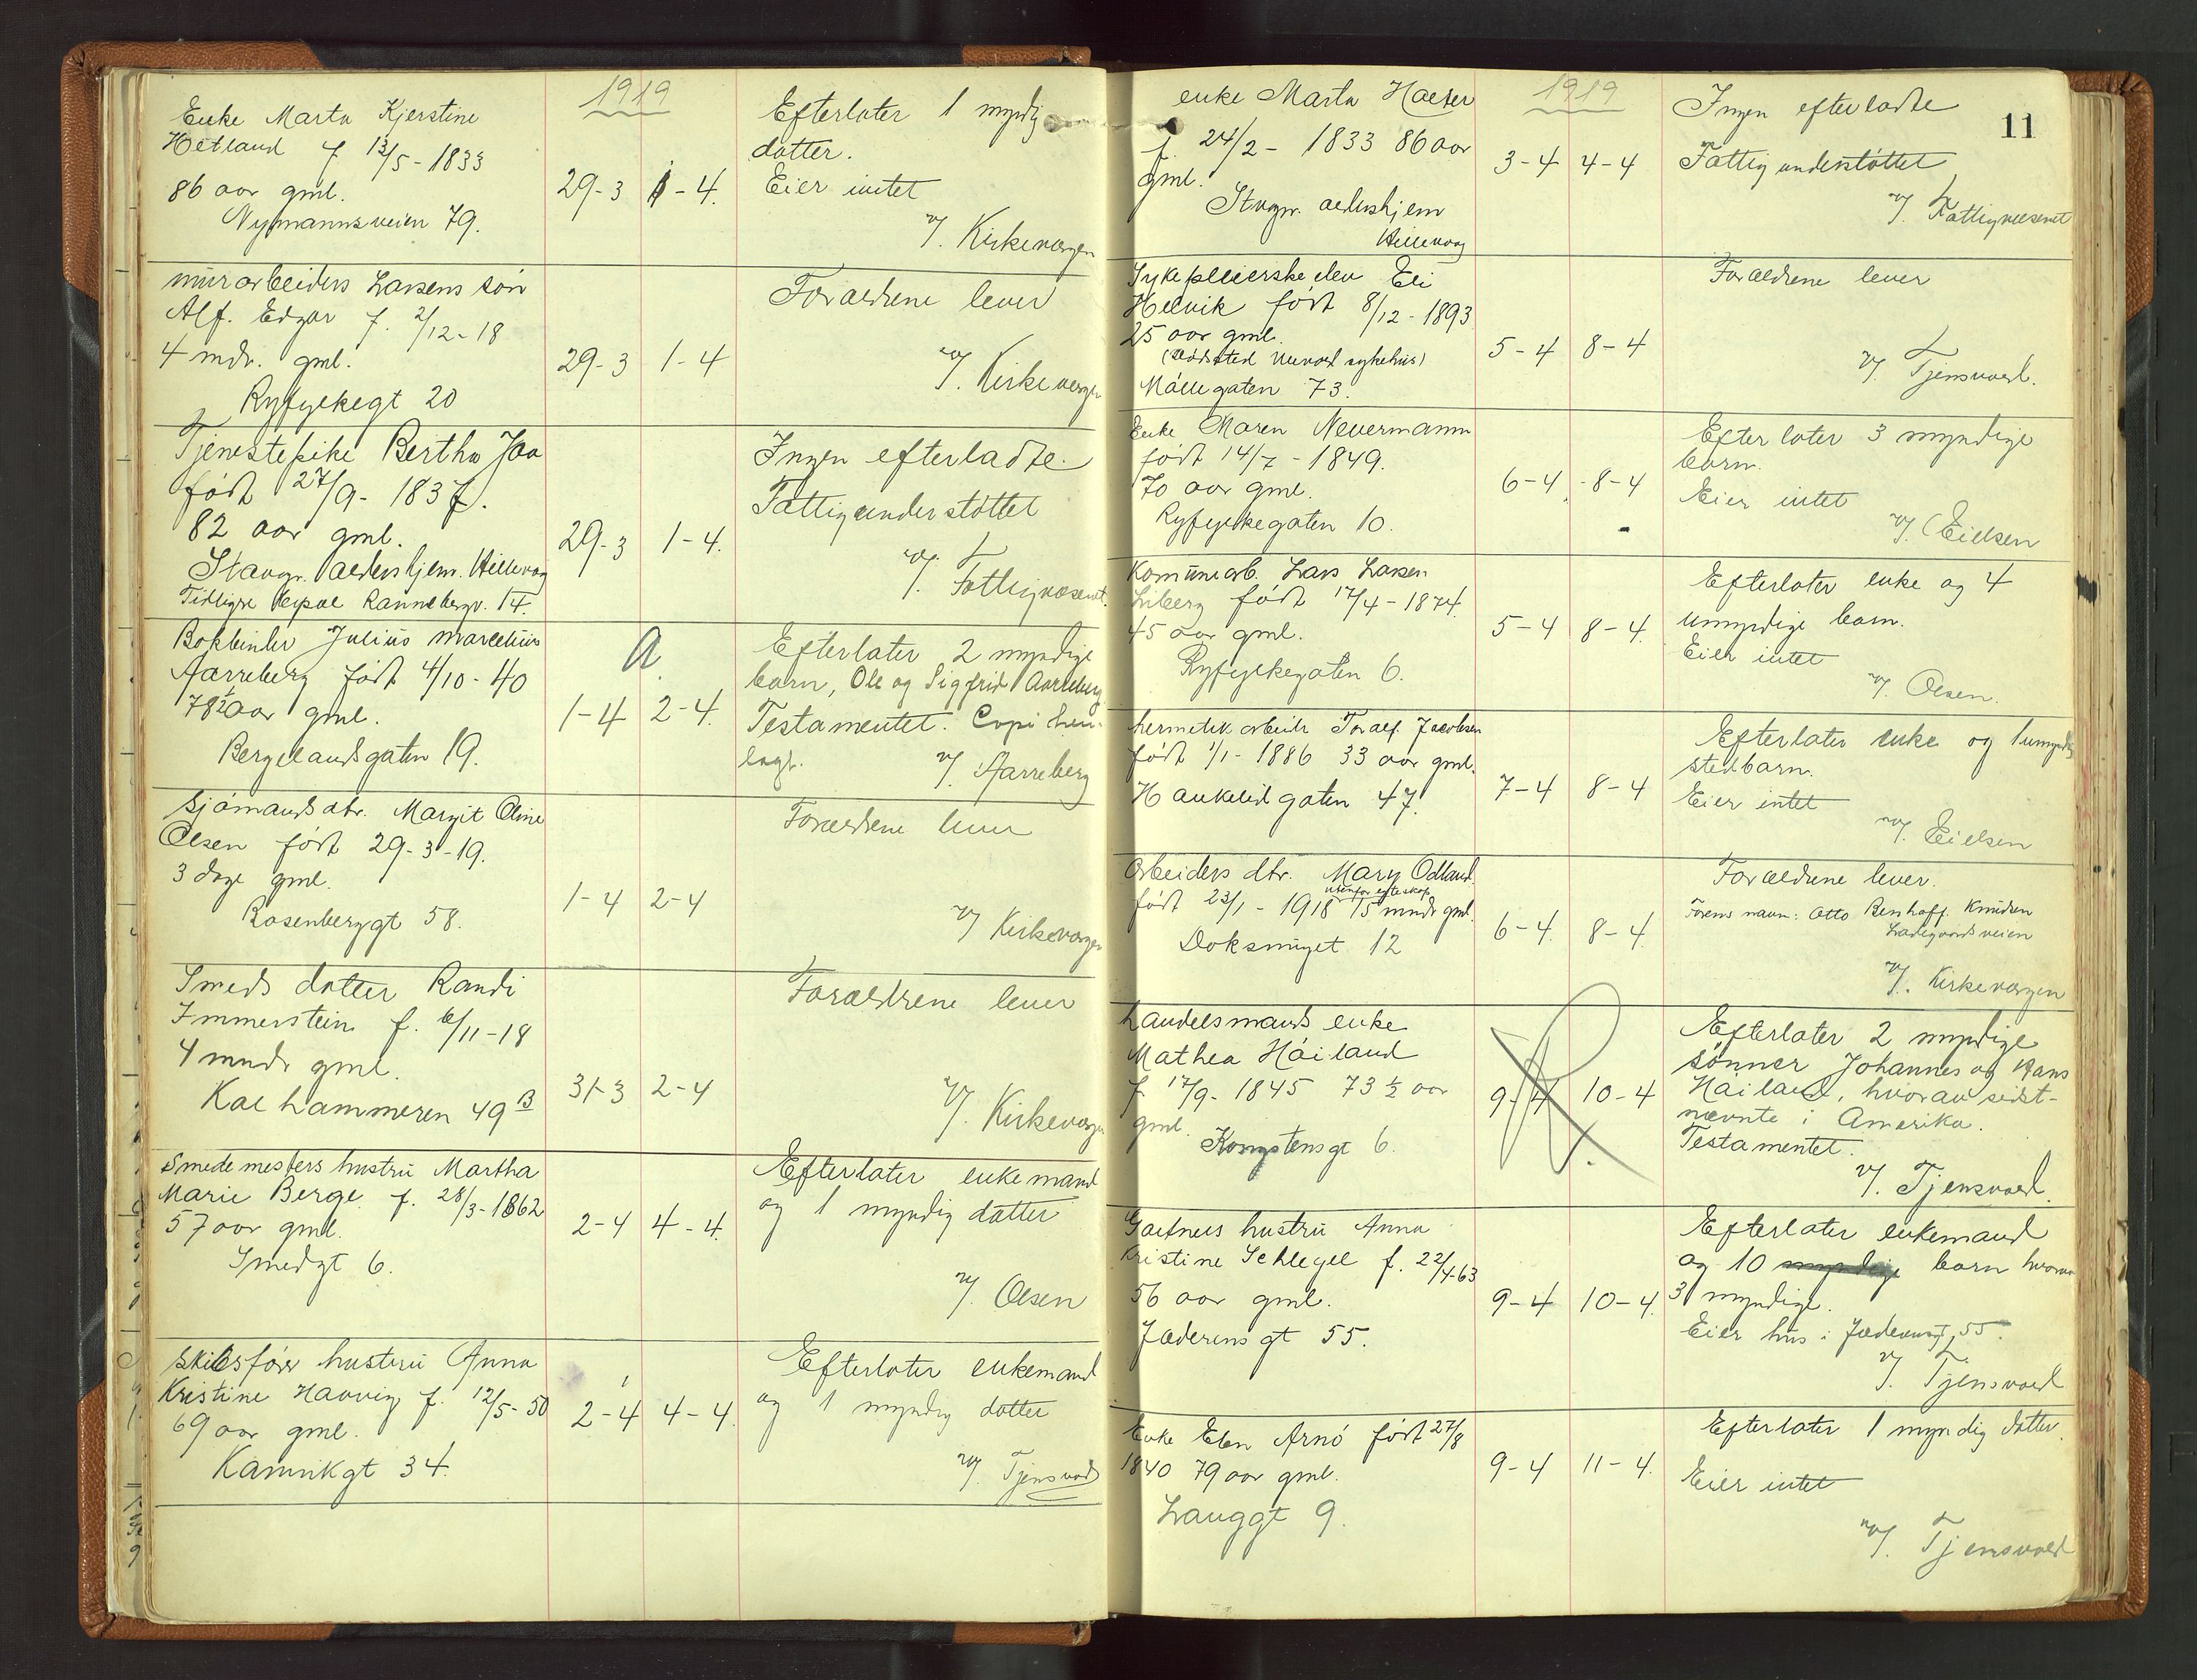 1919
Enke Marta Kjerstine
Hetland f 13/5 - 1833
86 aar gml.
Nymannsveien 79.
29-3 1-4.
Efterlater 1 myndig
datter.
Eier intet
v/. Kirkevergen
murarbeiders Larsens søn
Alf. Edgar f. 2/12-18
4 mdr. gml.
Ryfylkegt 20
29-3 1-4
Forældrene lever
v/. Kirkevergen
Tjenestepike Bertha Joa
født 27/9 - 1837.
82 aar gml.
Stavgr. aldershjem. Hillevåg
Tidligre Rannebergv. 14.
29-3 1-4.
Ingen efterladte.
Fattigunderstøttet
v/. Fattigvæsenet.
Bokbinder Julius Marcelius
Aarreberg født 4/10 - 40
78½ aar gml.
Bergelandsgaten 19.
a
1-4 2-4.
Efterlater 2 myndige
barn, Ole og Sigfrid Aarreberg
Testamentet. Copi hen-
lagt.
v/. Aarreberg
Sjømands dtr. Margit Oline
Olsen født 29-3-19.
3 dage gml.
Rosenberggt 58.
1-4 2-4
Forældrene lever
v/ Kirkevergen
Smeds datter Randi
Immerstein f. 6/11-18
4 mndr gml.
Kalhammeren 49 B
31-3 2-4
Forældrene lever
v/. Kirkevergen
Smedemesters hustru Martha
Marie Berge f. 28/3-1862
57 aar gml.
Smedgt 6.
2-4 4-4.
Efterlater enkemand
og 1 myndig datter
v/. Olsen
Skibsfører hustru Anna
Kristine Havvig f. 12/5-50
69 aar gml.
Kannikgt 34.
2-4 4-4.
Efterlater enkemand
og 1 myndig datter
v/. Tjensvold
11
1919
enke Marta Haeser
f. 24/2 - 1833 86 aar
gml.
Stvgr. aldershjem
Hillevåg
3-4 4-4
Ingen efterladte
Fattig understøttet
v/. Fattigvæsenet
Sykepleierske elev Eli
Helvik født 8/12 - 1893
25 aar gml.
(Dødsted Ullevål sykehus)
Møllegaten 73.
5-4 8-4
Forældrene lever
v/. Tjensvold.
Enke Maren Nevermann
født 14/7 - 1849.
70 aar gml.
Ryfylkegaten 10.
6-4 8-4
Efterlater 3 myndige
barn.
Eier intet
v/. Eielsen
Komunearb. Lars Larsen
Liberg født 17/4 - 1874.
45 aar gml.
Ryfylkegaten 6.
5-4 8-4.
Efterlater enke og 4
umyndige barn.
Eier intet
v/. Olsen.
hermetik arbeider Toralf Jacobsen
født 1/1 - 1886 33 aar gml.
Haukelid gaten 47.
7-4 8-4
Efterlater enke og 1 umyndig
stedbarn.
Eier intet
v/. Eielsen
Arbeiders dtr. Mary Odland.
utenfor egteskap
født 23/1 - 1918 15 mndr gml.
Doksmuget 12
6-4. 8-4.
Forældrene lever.
Farens navn: Otto Benhoff. Knudsen
Ladegaardsveien
v/. Kirkevergen
handelsmands enke
Mathea Håiland
f 17/9 - 1845 73½ aar
gml.
Kongstensgt 6.
9-4 10-4
Efterlater 2 myndige
sønner Johannes og Hans
Håiland, hvorav sidst-
nævnte i Amerika.
Testamentet.
v/. Tjensvold.
Gartners hustru Anna
Kristine Schlegel f. 22/4-63
56 aar gml.
Jæderens gt 55.
9-4 10-4.
Efterlater enkemand
og 10 myndige barn hvorav
3 myndige.
Eier hus i Jæderensgt. 55.
v/. Tjensvold
Enke Elen Arnø født 27/8
1840 79 aar gml.
Langgt 9.
9-4 11-4.
Efterlater 1 myndig datter.
Eier intet
v/. Tjensvold